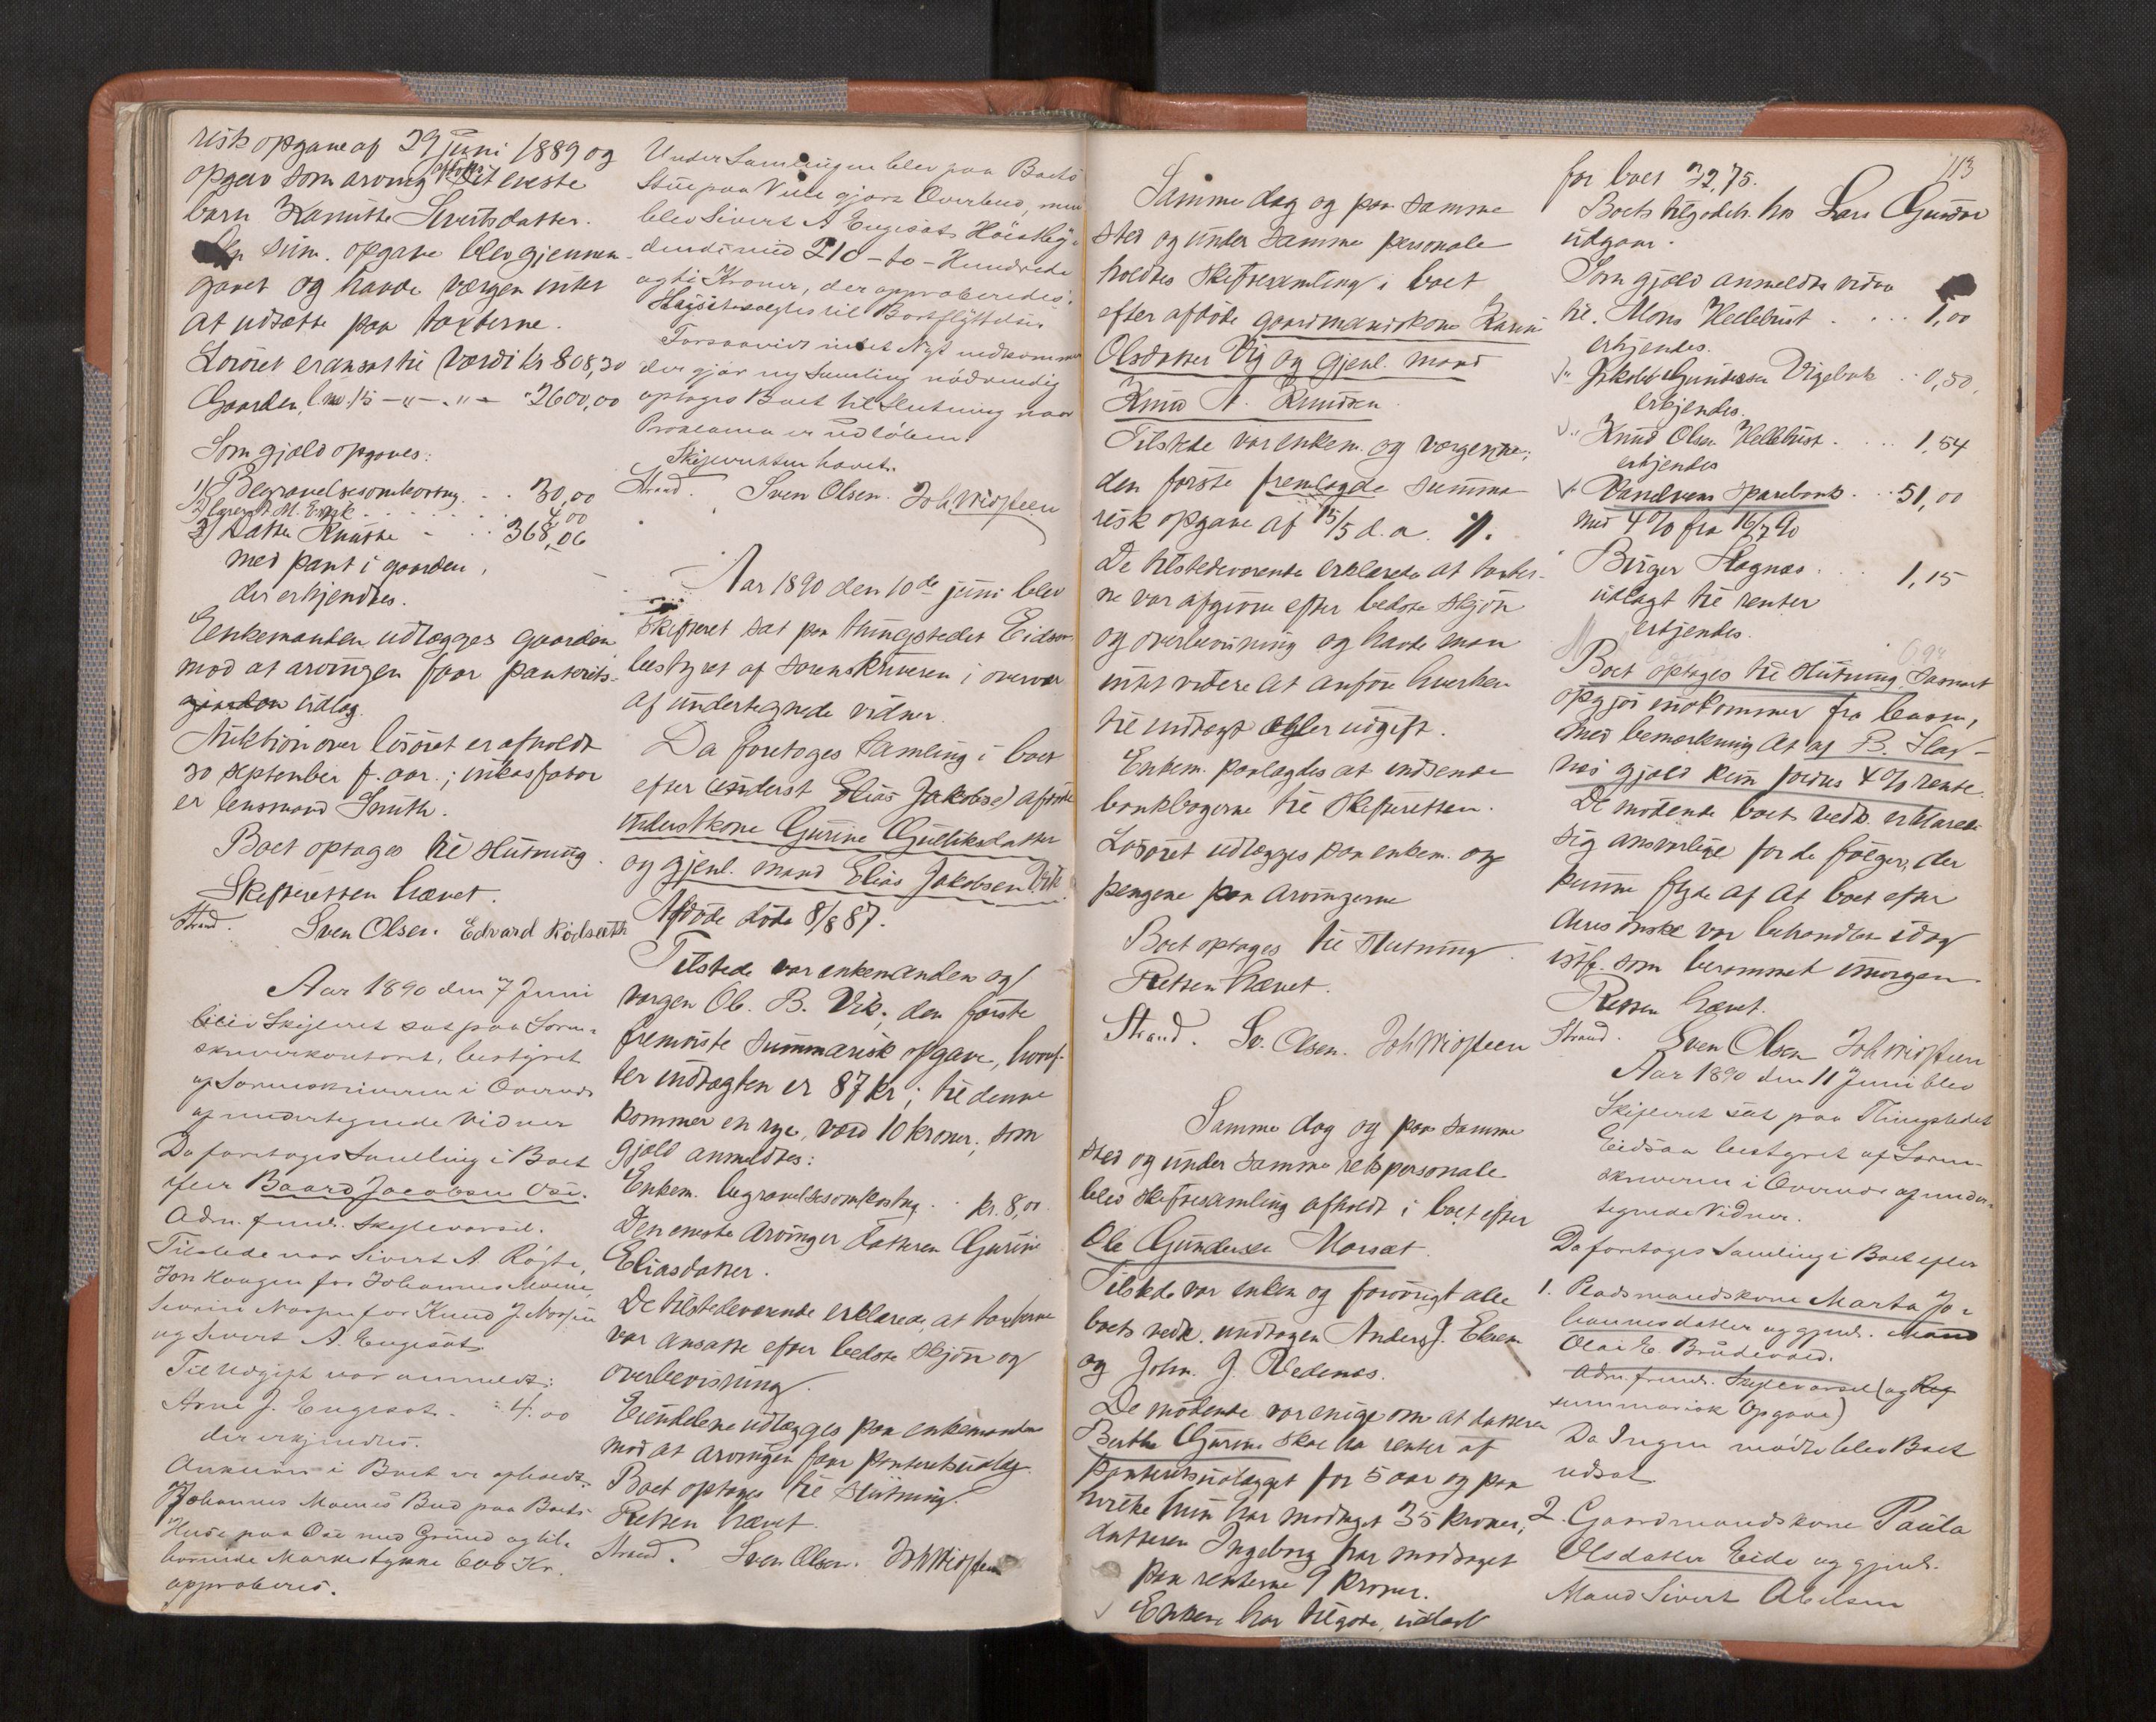 risk opgave af 29 juni 1889 og
opgav som arving afdødes eneste
barn Hansitte Sivertsdatter.
Den sum. opgave blev gjennem-
gaaet og havde værgen intet
at udsætte paa taxterne.
Løsøret er ansat til værdi kr 808,30
Gaarden, l. no. 15 - " - " - 2600,00
Som gjæld opgaves:
1) Begravelsesomkostng. . . 30,00
2) M. . . . 4,00
3) Datter . . 368,06
med pant i gaarden,
der erkjendtes.
Enkemanden udlægges gaarden
mod at arvingen faar panterets-
gaarden udlæg.
Auktion over løsøret er afholdt
30 september f. aar.; inkassator
er lensmand Smith.
Boet optages til Slutning.
Skifteretten hævet.
Strand. Sven Olsen. Edvard Rødsæth
Aar 1890 den 7 Juni
blev Skifteret sat paa Soren-
skriverkontoret, bestyret
af Sorenskriveren i Overvær
af undertegnede Vidner
Da foretoges Samling i Boet
efter Baard Jacobsen Ose.
Adm. freml. Skiftevarsel.
Tilstede var Sivert A. Røgte,
Jon Haugen for Johannes Moene,
for Knud J.
og Sivert A. Engesæt
Til Udgift var anmeldt:
Arne J. Engesæt. - 4.00
der erkjendtes.
Auktion i Boet er afholdt.
Johannes Moenes Bud paa Boets
Huse paa Ose med Grund og til-
hørende Markestykke 600 Kr.
approberes.
Under Samlingen blev paa Boets
Stue paa gjort Overbud, men
blev Sivert A Engesæt Høistby-
dende med 210 - to - Hundrede
og ti Kroner, der approberedes.
til Bortflyttelse
Forsaavidt intet Nyt
der gjør ny Samling nødvendig
optages Boet til Slutning naar
Proklama er udløben.
Skifteretten hævet.
Strand. Sven Olsen. Joh Widsteen
Aar 1890 den 10de juni blev
Skifteret sat paa thingstedet Eidsaa
bestyret af sorenskriveren i overvær
af undertegnede vidner.
Da foretoges Samling i boet
efter (inderst Elias Jakobse) afdøde
inderstkone Gurine Gulliksdatter
og gjenl. mand Elias Jakobsen Vik.
Afdøde døde 8/8 87.
Tilstede var enkemanden og
værgen Ole B. Vik; den første
fremviste summarisk opgave, hvoref-
ter indtægten er 87 kr; til denne
kommer en rye, værd 10 kroner; som
gjæld anmeldtes:
Enkem. begravelsesomkostng . . kr. 8,00.
Den eneste arvinger datteren Gurine
Eliasdatter.
De tilstedeværende erklærede, at taxterne
var ansatte efter bedste skjøn og
overbevisning.
Eiendelene udlægges paa enkemanden
mod at arvingen faar panteretsudlæg.
Boet optages til Slutning.
Retten hævet.
Strand. Sven Olsen. Joh Widsteen
113
Samme dag og paa samme
sted og under samme personale
holdtes skiftesamling i boet
efter afdøde gaardmandskone Karen
Olsdatter Vig og gjenl. mand
Knud A. Knudsen.
Tilstede var enkem. og værgerne;
den første fremlagde summa
risk opgave af 15/5 d.a. //.
De tilstedeværende erklærede at taxter-
ne var afgivne efter bedste skjøn
og overbevisning og havde man
intet videre at anføre hverken
til indtægt eller udgift.
Enkem. paalagdes at indsende
bankbøgerne til Skifteretten.
Løsøret udlægges paa enkem. og
pengene paa arvingerne
Boet optages til Slutning.
Retten hævet.
Strand. Sv. Olsen. Joh Widsteen
Samme dag og paa samme
sted og under samme retspersonale
blev skiftesamling afholdt i boet efter
Ole Gundersen Morsæt.
Tilstede var enken og forøvrigt alle
boets vedk. undtagen Anders J.
og John. J. Aedenes.
De mødende var enige om at datteren
Berthe Gurine skal ha renter af
panteretsudlægget for 5 aar og paa
hvilke hun har modtaget 35 kroner;
datteren Ingeborg har modtaget
paa renterne 9 kroner.
Enken har tilgode, udlagt
for boet 32,75.
Boets tilgodeh. hos Lars Gunder
udgaar.
Som gjæld anmeldtes videre
til. Mons Hellebust . . . . 1,00
erkjendes.
" Jakob Gundersen . 0,50,
erkjendes.
" Knud Olsen Hellebust . . . 1,54
erkjendes
" Vandvens Sparebank . . . 51,00
med 4 % fra 16/7 90
Birger Slagnæs . . . 1,15
udlagt til renter
erkjendes.
Boet optages til Slutning, saasnart
opgjør indkommer fra lensm,
med bemærkning at af B. Slag-
næs gjæld kun fordres 4 % rente.
De mødende boets vedk. erklærede
sig ansvarlige for de følger, der
kunne flyde af at boet efter
deres ønske var behandlet idag
istf. som berammet imorgen.
Retten hævet.
Strand. Sven Olsen Joh Widsteen
Aar 1890 den 11 Juni blev
Skifteret sat paa Thingstedet
Eidsaa bestyret af Soren-
skriveren i Overvær af under-
tegnede Vidner.
Da foretoges Samling i Boet efter
1. Pladsmandskone Marta Jo-
hannesdatter og gjenl. Mand
Olai E. Brudevold.
Adm. freml. Skiftevarsel (og Reg
summarisk Opgave)
Da Ingen mødte blev Boet
udsat
2. Gaardmandskone Paula
Olsdatter Eide og gjenl.
Mand Sivert Abelsen